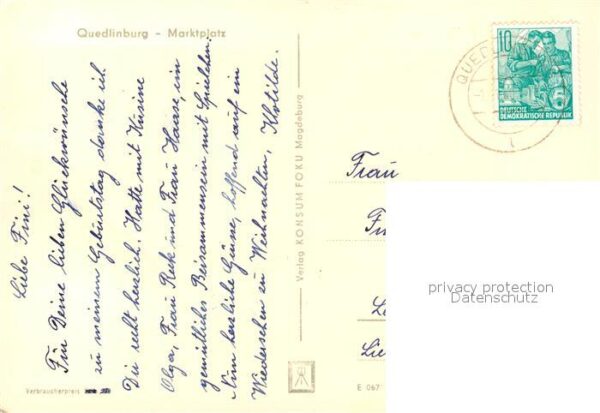 Quedlinburg - Marktplatz
Liebe Fini!
Für Deine lieben Glückwünsche
zu meinem Geburtstag danke ich
Dir recht herzlich. Hatte mit Kusine
Olga, Frau Reek und Frau Haase, ein
gemütliches Beisammensein mit Spielchen.
Nim herzliche Grüsse, hoffend auf ein
Wiedersehen zu Weihnachten, Klotilde.
Verlag KONSUM FOKU Magdeburg
Verbraucherpreis
E 067
10
DEUTSCHE
DEMOKRATISCHE REPUBLIK
QUEDL
Frau
privacy protection
Datenschutz